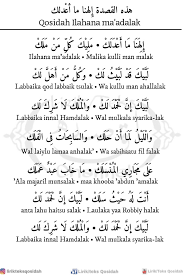 هذه القصدة إلهنا ما أعدلك
Qosidah Ilahana ma'adalak
إِلَهَنَا مَا أَعْدَلَكْ • مَلِيكَ كُلِّ مَنْ مَلَكْ
Ilahana ma'adalak • Malika kulli man malak
لَبَّيْكَ قَدْ لَبَّيْتُ لَكْ • وَكُلُّ مَنْ أَهَلَّ لَكْ
Labbaika qod labbaik tulak • Wa kullu man ahalla lak
لَبَّيْكَ إِنَّ الْحَمْدَ لَكْ • وَالْمُلْكَ لَا شَرِيكَ لَكْ
Labbaika innal Hamdalak • Wal mulkala syarika-lak
وَاللَّيْلُ لَمَّا أَنْ حَلَكْ • وَالسَّابِحَاتُ فِي الْفَلَكْ
Wal laiylu lamaa anhalak • Wa sabihaatu fil falak
عَلَى مَجَارِي الْمُنْسَلَكْ • مَا خَابَ عَبْدٌ أَمَّلَكْ
'Ala majaril munsalak • maa khooba 'abdun 'amalak
أَنْتَ لَهُ حَيْثُ سَلَكْ • لَبَّيْكَ إِنَّ الْحَمْدَ لَكْ
anta lahu haitsu salak • Laulaka yaa Robbiy halak
لَبَّيْكَ إِنَّ الْحَمْدَ لَكْ • وَالْمُلْكَ لَا شَرِيكَ لَكْ
Labbaika innal Hamdalak • Wal mulkala syarika-lak
lirikteksqosidah
Lirik/teks Qosidah